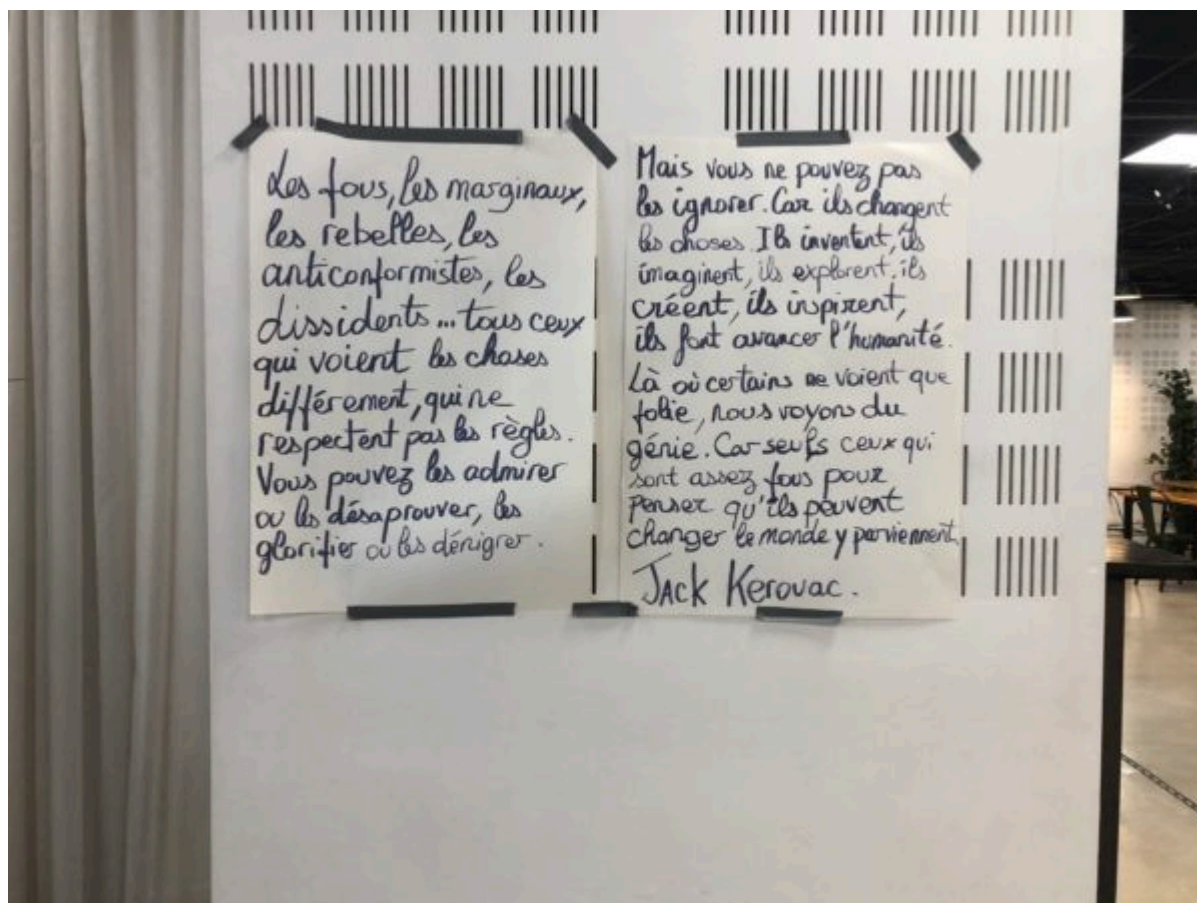 Les fous, les marginaux,
les rebelles, les
anticonformistes, les
dissidents... tous ceux
qui voient les choses
différement, qui ne
respectent pas les règles.
Vous pouvez les admirer
ou les désaprouver, les
glorifier ou les dénigrer.
Mais vous ne pouvez pas
les ignorer. Car ils changent
les choses. Ils inventent, ils
imaginent, ils explorent. ils
créent, ils inspirent,
ils font avancer l'humanité.
Là où certains ne voient que
folie, nous voyons du
génie. Car seuls ceux qui
sont assez fous pour
penser qu'ils peuvent
changer le monde y parviennent.
Jack Kerouac.